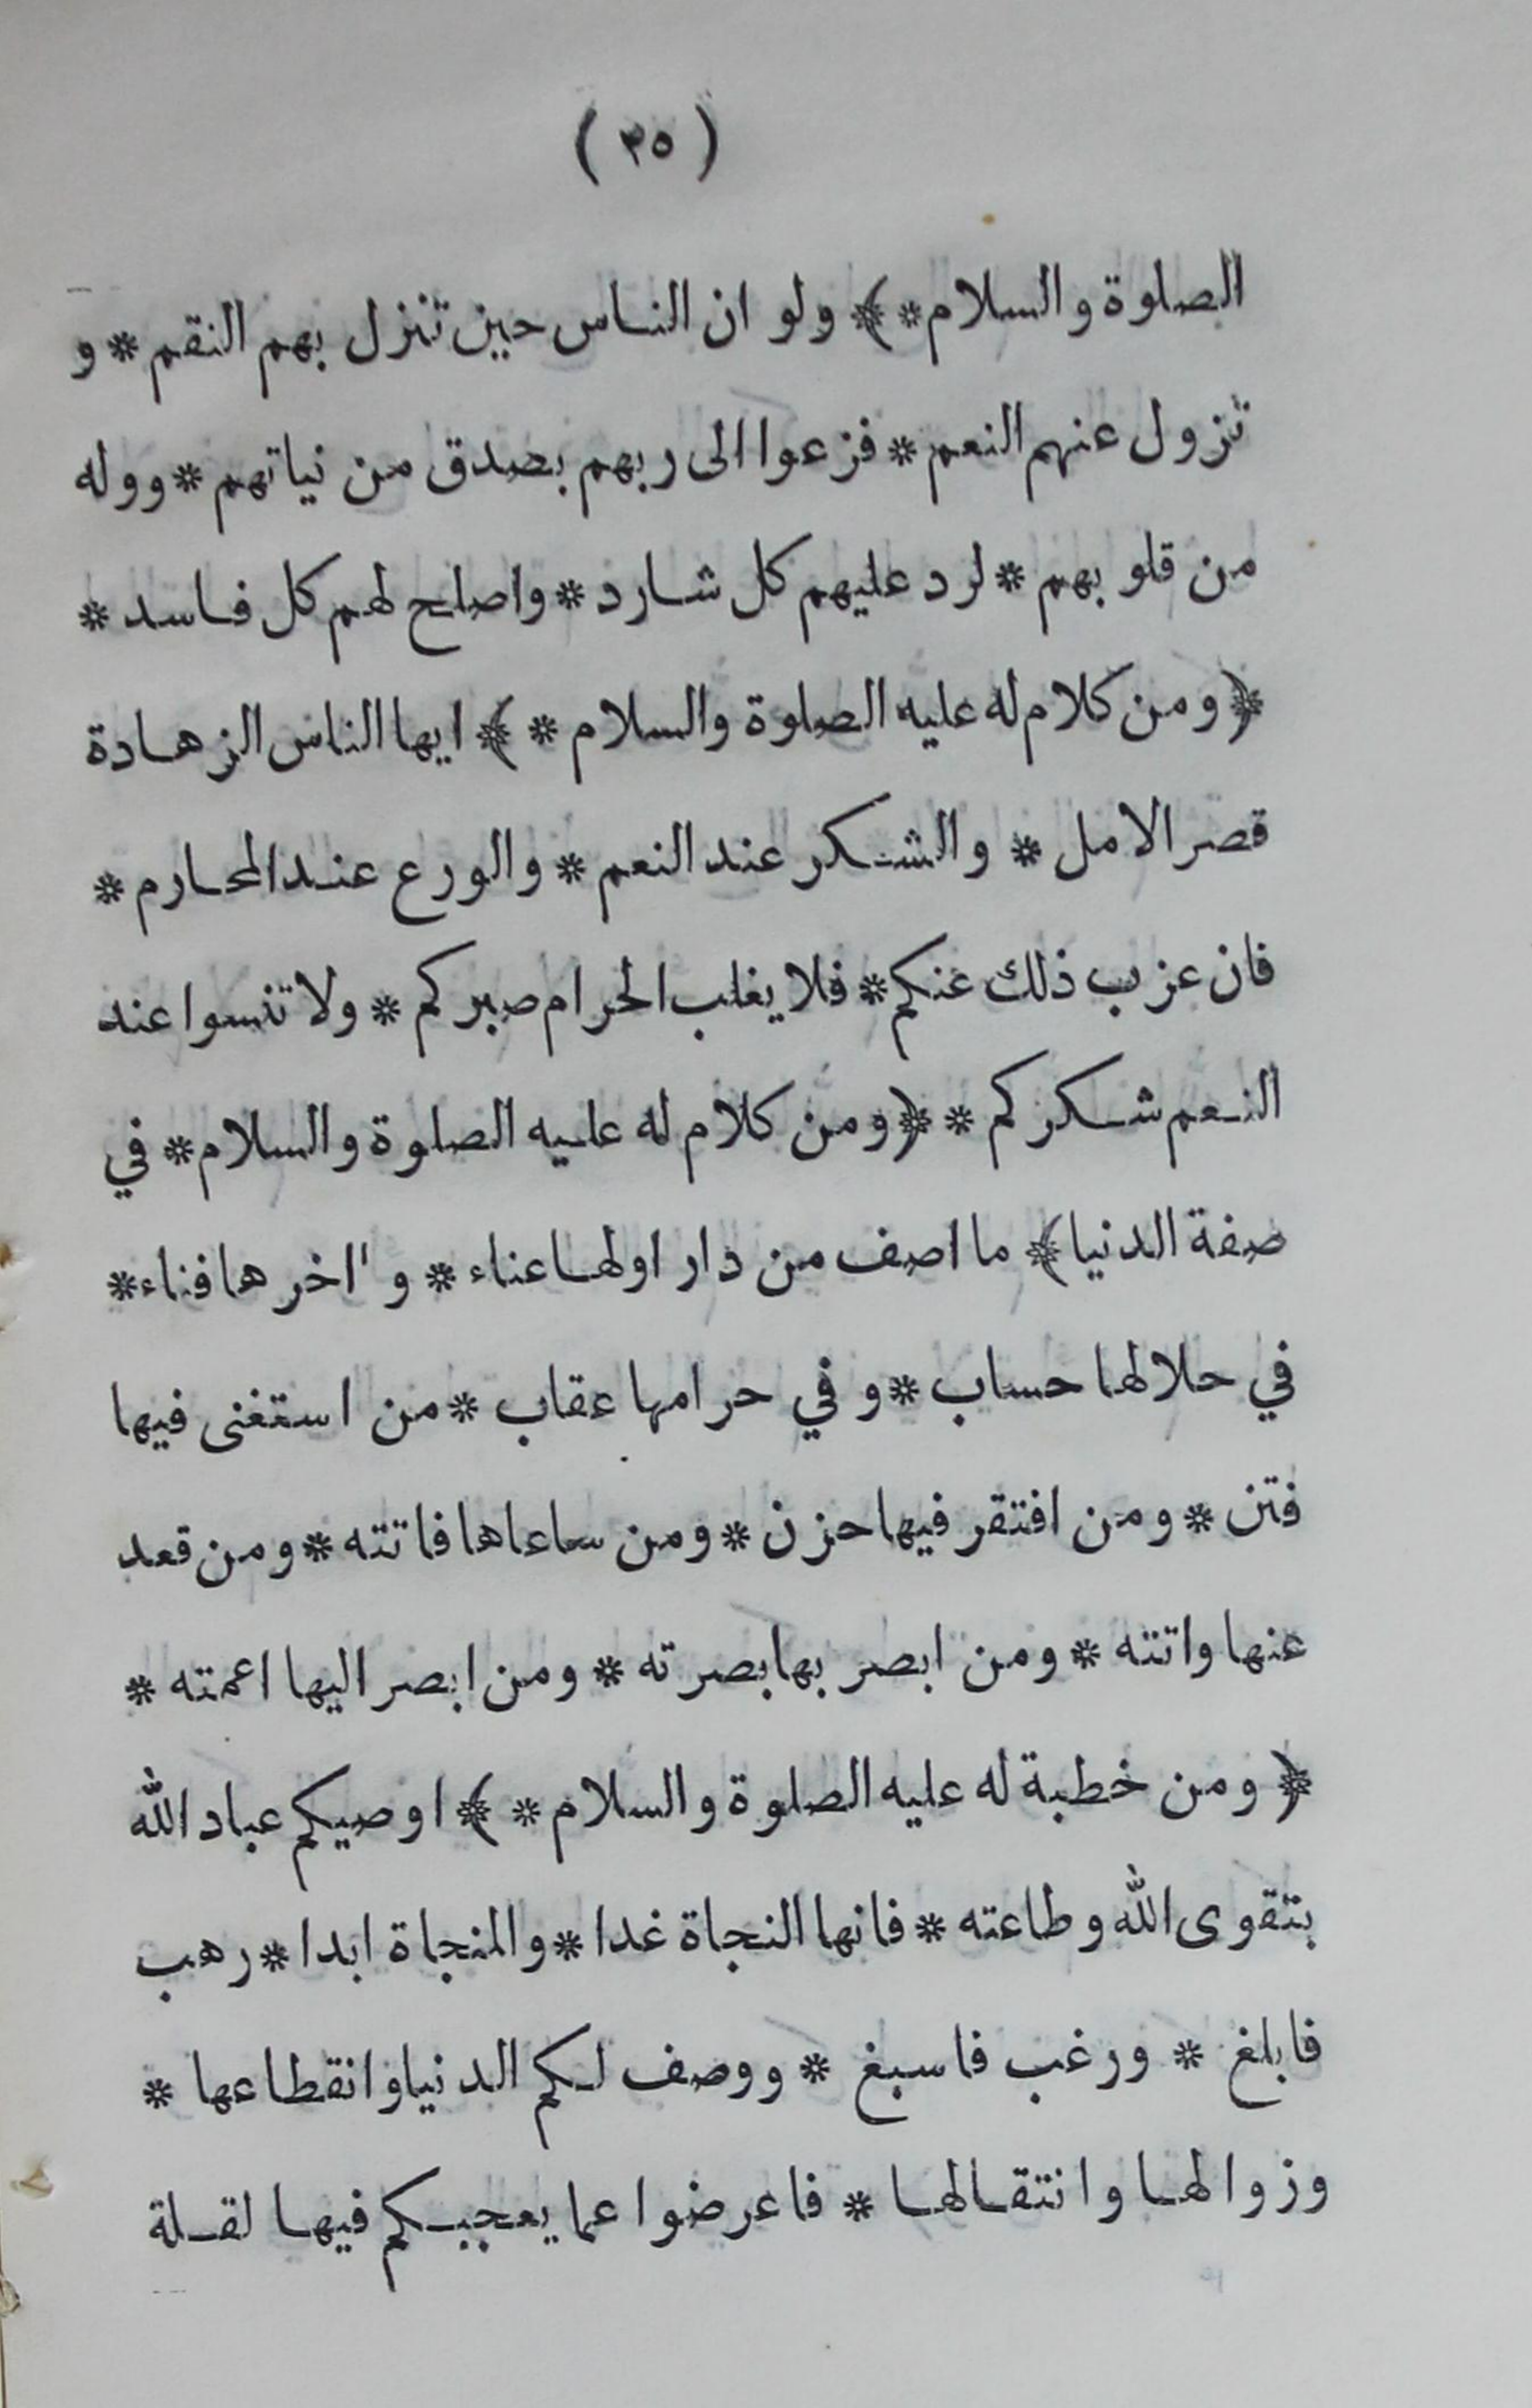 ( ٣٥ )
الصلوة والسلام * ﴾ ولو ان الناس حين تنزل بهم النقم * و
تزول عنهم النعم * فزعوا الى ربهم بصدق من نياتهم * ووله
من قلوبهم * لرد عليهم كل شارد * واصلح لهم كل فاسد *
﴿ ومن كلام له عليه الصلوة والسلام * ﴾ ايها الناس الزهادة
قصر الامل * والشكر عند النعم * والورع عند المحارم *
فان عزب ذلك عنكم * فلا يغلب الحرام صبركم * ولا تنسوا عند
النعم شكركم * ﴿ ومن كلام له عليه الصلوة والسلام * في
صفة الدنيا ﴾ ما اصف من دار اولها عناء * و'اخرها فناء *
في حلالها حساب * وفي حرامها عقاب * من استغنى فيها
فتن * ومن افتقر فيها حزن * ومن ساعاها فاتته * ومن قعد
عنها واتته * ومن ابصر بها بصرته * ومن ابصر اليها اعمته *
﴿ ومن خطبة له عليه الصلوة والسلام * ﴾ اوصيكم عباد الله
بتقوى الله وطاعته * فانها النجاة غدا * والمنجاة ابدا * رهب
فابلغ * ورغب فاسبغ * ووصف لكم الدنيا وانقطاعها *
وزوالها وانتقالها * فاعرضوا عما يعجبكم فيها لقلة